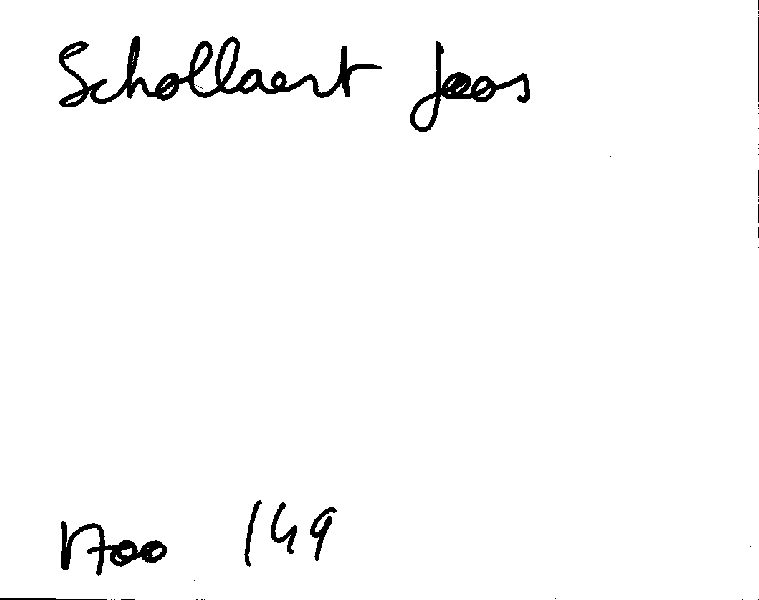 Schollaert Joos
1700 149